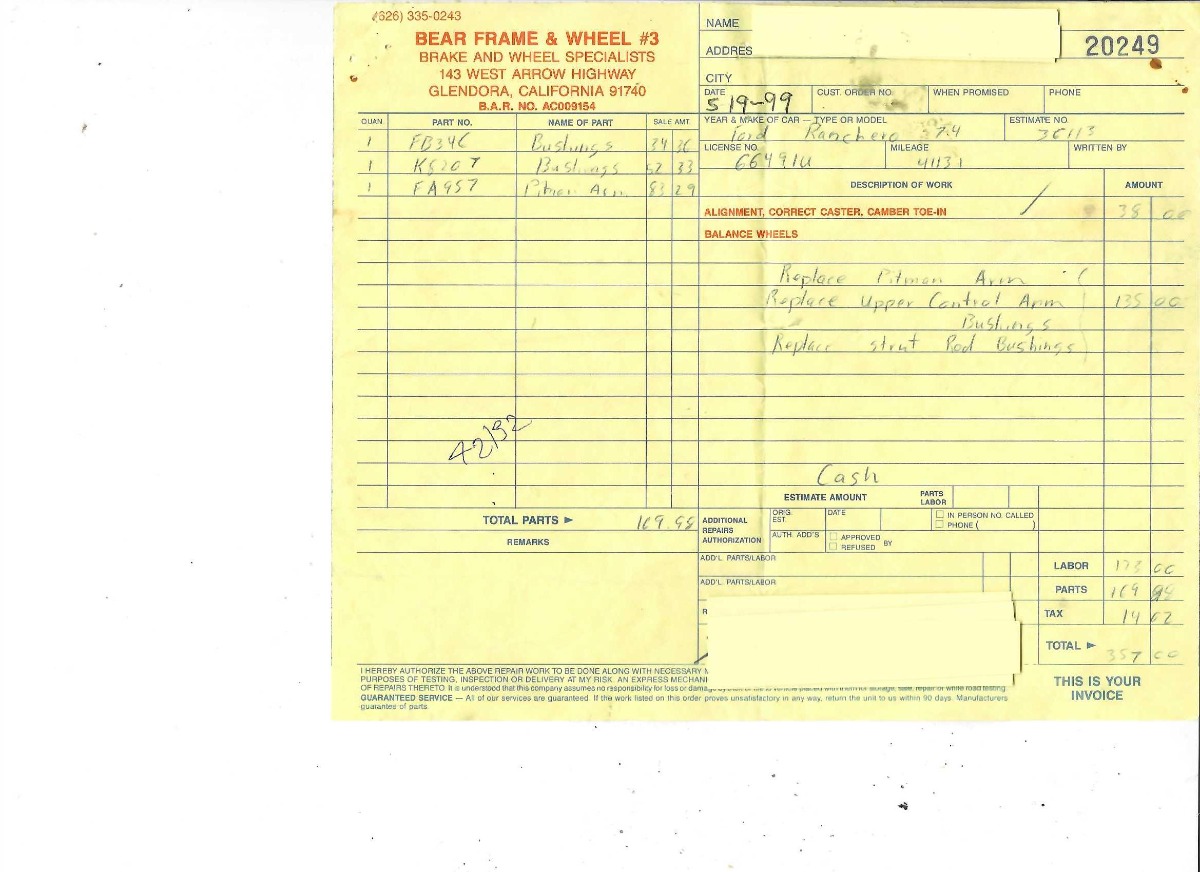 (626) 335-0243
BEAR FRAME & WHEEL #3
BRAKE AND WHEEL SPECIALISTS
143 WEST ARROW HIGHWAY
GLENDORA, CALIFORNIA 91740
B.A.R. NO. AC009154
NAME
ADDRES
20249
CITY
DATE CUST. ORDER NO. WHEN PROMISED PHONE
5 19-99
QUAN. PART NO. NAME OF PART SALE AMT.
YEAR & MAKE OF CAR — TYPE OR MODEL ESTIMATE NO.
Ford Ranchero 36113
1 FB346 Bushings 34 36
LICENSE NO. MILEAGE WRITTEN BY
66491U 41131
1 K8207 Bushings 52 33
1 FA957 Pitman Arm 83 29
DESCRIPTION OF WORK AMOUNT
ALIGNMENT, CORRECT CASTER, CAMBER TOE-IN 38 00
BALANCE WHEELS
Replace Pitman Arm
Replace Upper Control Arm 135 00
Bushings
Replace strut Rod Bushings
42132
Cash
ESTIMATE AMOUNT PARTS LABOR
TOTAL PARTS ► 169.98
REMARKS
ADDITIONAL REPAIRS AUTHORIZATION
ORIG. EST. DATE
IN PERSON NO. CALLED
PHONE ( )
AUTH. ADD'S APPROVED
REFUSED BY
ADD'L. PARTS/LABOR
ADD'L. PARTS/LABOR
R
LABOR 173 00
PARTS 169 98
TAX 14 02
TOTAL ► 357 00
I HEREBY AUTHORIZE THE ABOVE REPAIR WORK TO BE DONE ALONG WITH NECESSARY M
PURPOSES OF TESTING, INSPECTION OR DELIVERY AT MY RISK. AN EXPRESS MECHANI
OF REPAIRS THERETO. It is understood that this company assumes no responsibility for loss or damage by theft or fire to vehicle placed with them for storage, sale, repair or while road testing.
GUARANTEED SERVICE — All of our services are guaranteed. If the work listed on this order proves unsatisfactory in any way, return the unit to us within 90 days. Manufacturers
guarantee of parts
THIS IS YOUR
INVOICE